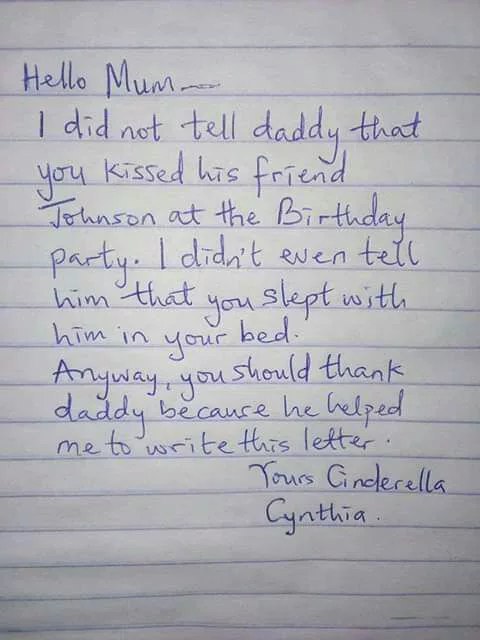 Hello Mum —
I did not tell daddy that
you kissed his friend
Johnson at the Birthday
party. I didn't even tell
him that you slept with
him in your bed.
Anyway, you should thank
daddy because he helped
me to write this letter.
Yours Cinderella
Cynthia.